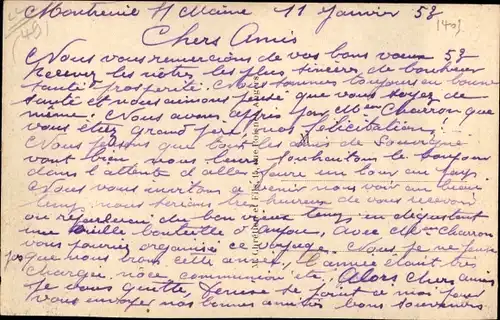 Montreuil s/ Maine 11 Janvier 58
Chers Amis
Nous vous remercions de vos bons voeux 58
recevez les nôtres les plus sincères de bonheur
santé prospérité. Nous sommes toujours en bonne
santé et nous aimons penser que vous soyez de
même. Nous avons appris par Mme Charron que
vous étiez grand père, nos félicitations.
Nous pensons que tout les amis de
vont bien nous leurs souhaitons le bonjour
dans l'attente d'aller faire un tour au pays.
Nous vous invitons a venir nous voir au beau
temps nous serions très heureux de vous recevoir
on reparlerai du bon vieux temps en dégustant
une vieille bouteille d'Anjou, avec Mme Charron
vous pourriez organiser ce voyage. Nous je ne pense
pas que nous irons cette année, l'année étant très
chargée, noce, communion etc. Alors chers amis
je vous quitte, Denise se joint a moi pour
vous envoyer nos bonnes amitiés bons souvenirs.